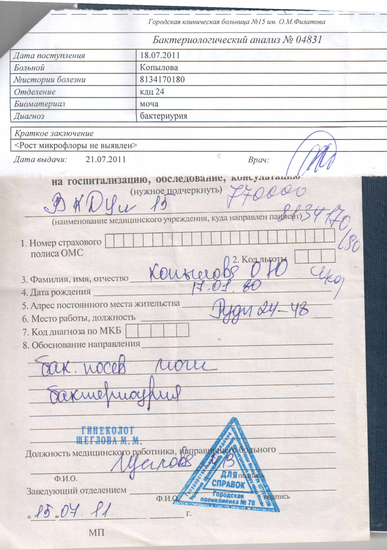 Городская клиническая больница №15 им. О.М.Филатова
Бактериологический анализ № 04831
Дата поступления 18.07.2011
Больной Копылова
№истории болезни 8134170180
Отделение кдц 24
Биоматериал моча
Диагноз бактериурия
Краткое заключение
<Рост микрофлоры не выявлен>
Дата выдачи: 21.07.2011 Врач:
на госпитализацию, обследование, консультацию
(нужное подчеркнуть) 770000
(наименование медицинского учреждения, куда направлен пациент) 8134170
180
1. Номер страхового
полиса ОМС
2. Код льготы
3. Фамилия, имя, отчество Копылова
4. Дата рождения 17.01.80
5. Адрес постоянного места жительства
6. Место работы, должность 24-48
7. Код диагноза по МКБ
8. Обоснование направления
бак. посев мочи
бактериурия
ГИНЕКОЛОГ
ЩЕГЛОВА М. М.
Должность медицинского работника, направившего больного
Щеглова
Ф.И.О. подпись
Заведующий отделением
Ф.И.О. подпись
ДЛЯ
СПРАВОК
Городская
поликлиника № 78
15.07.11 г.
МП